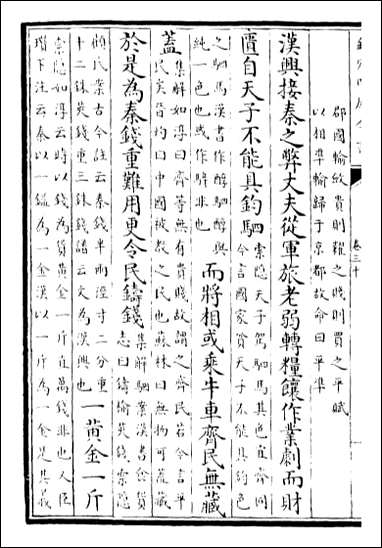 郡國輸斂貴則糶之賤則買之平賦
以相準輸歸于京都故命曰平準
漢興接秦之弊丈夫從軍旅老弱轉糧饟作業劇而財
匱自天子不能具鈞駟
索隱天子駕駟馬其色宜齊同
今言國家貧天子不能具鈞色
之駟馬漢書作醇駟醇與
純一色也或作騂非也
而將相或乘牛車齊民無藏
蓋
集解如淳曰齊等無有貴賤故謂之齊民若今言平
民矣晉灼曰中國被教之民也蘇林曰無物可蓋藏
於是為秦錢重難用更令民鑄錢
集解駰案漢書食貨
志曰鑄榆莢錢索隱
顧氏案古今注云秦錢半兩徑寸二分重
十二銖莢錢重三銖錢譜云文為漢興也
一黃金一斤
索隱如淳云時以錢為貨黃金一斤直萬錢非也又臣
瓚下注云秦以一鎰為一金漢以一斤為一金是其義
卷三十